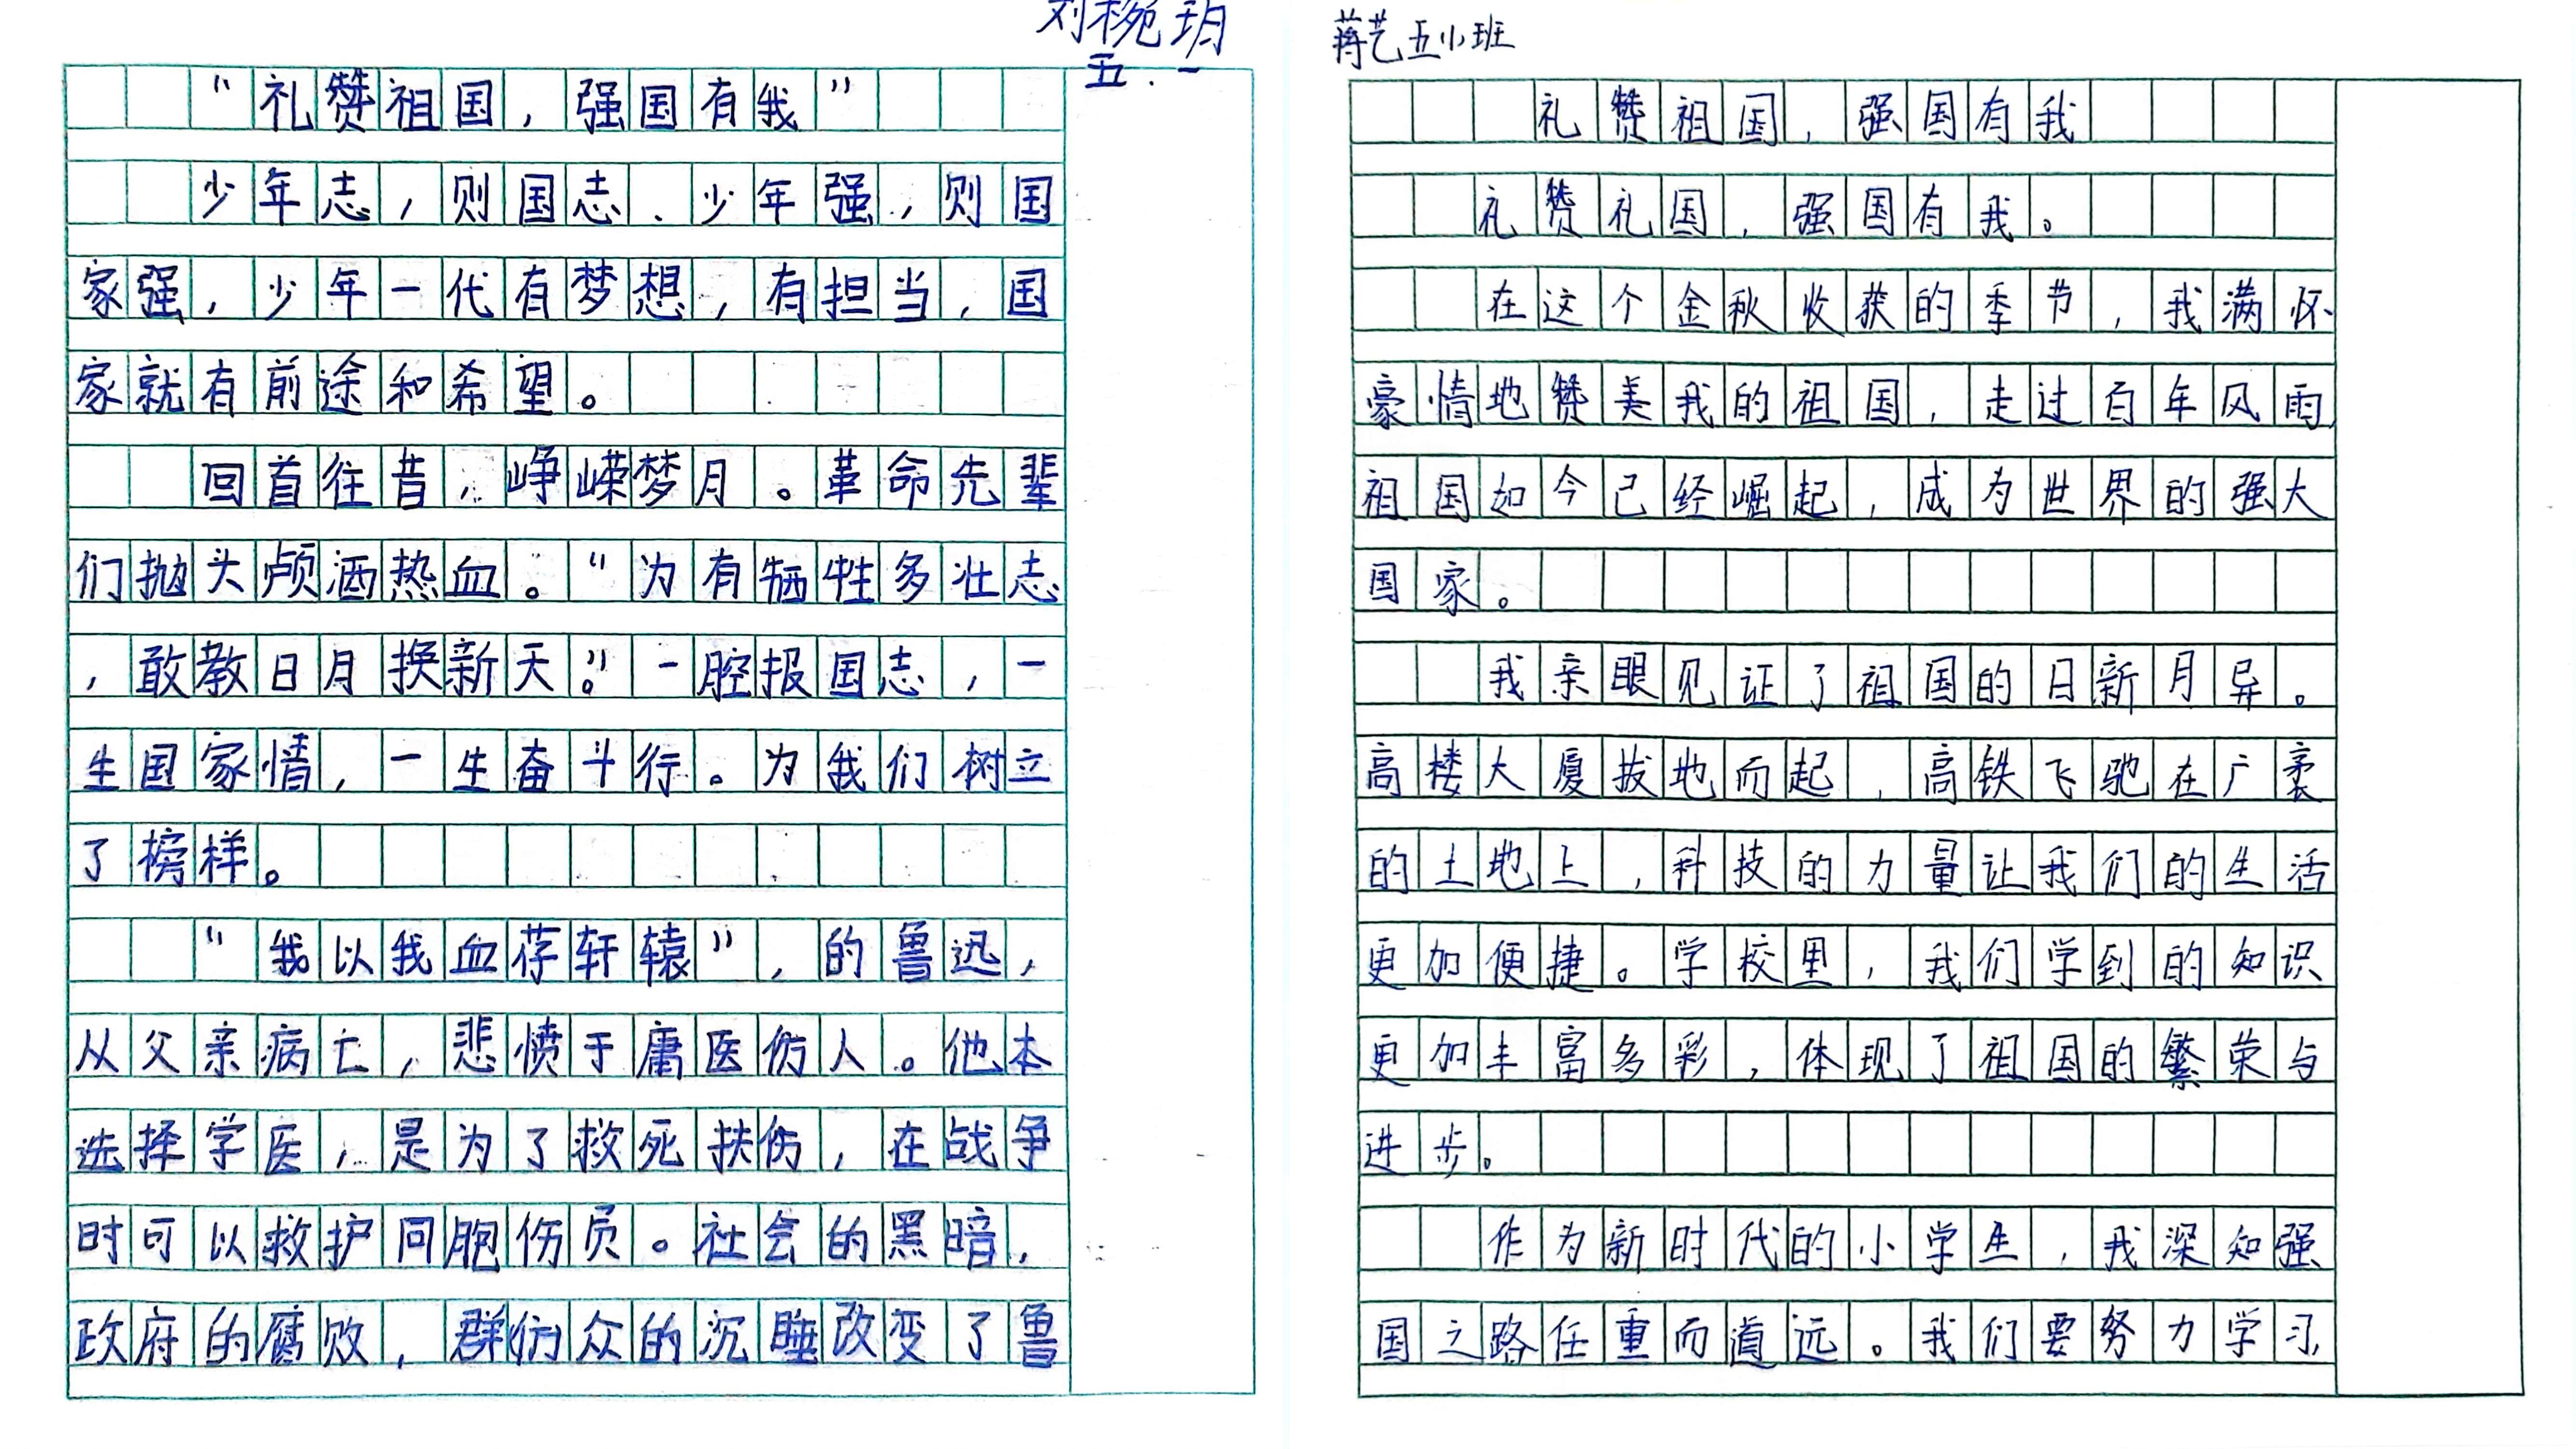 刘椀玥
五.一
“礼赞祖国，强国有我”
少年志，则国志、少年强，则国
家强，少年一代有梦想，有担当，国
家就有前途和希望。
回首往昔，峥嵘梦月。革命先辈
们抛头颅洒热血。“为有牺牲多壮志
，敢教日月换新天。”一腔报国志，一
生国家情，一生奋斗行。为我们树立
了榜样。
“我以我血荐轩辕”，的鲁迅，
从父亲病亡，悲愤于庸医伤人。他本
选择学医，是为了救死扶伤，在战争
时可以救护同胞伤员。社会的黑暗，
政府的腐败，群众的沉睡改变了鲁
蒋艺五小班
礼赞祖国，强国有我
礼赞礼国，强国有我。
在这个金秋收获的季节，我满怀
豪情地赞美我的祖国，走过百年风雨，
祖国如今已经崛起，成为世界的强大
国家。
我亲眼见证了祖国的日新月异。
高楼大厦拔地而起，高铁飞驰在广袤
的土地上，科技的力量让我们的生活
更加便捷。学校里，我们学到的知识
更加丰富多彩，体现了祖国的繁荣与
进步。
作为新时代的小学生，我深知强
国之路任重而道远。我们要努力学习，